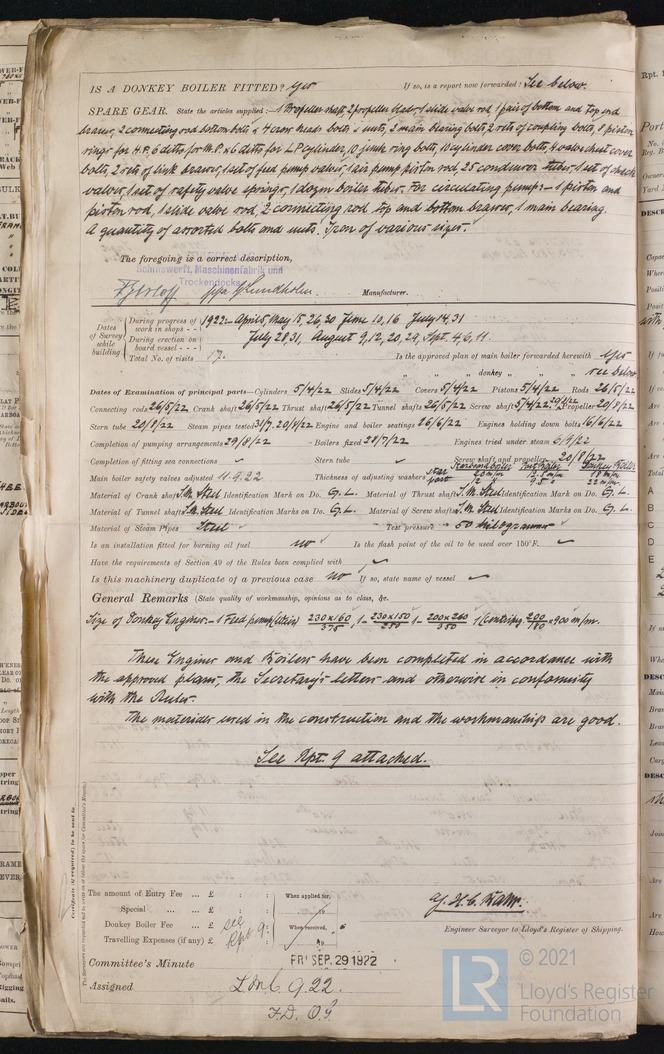 IS A DONKEY BOILER FITTED? Yes If so, is a report now forwarded? See below.
SPARE GEAR. State the articles supplied:— 1 Propeller shaft, 2 propeller blades, 1 slide valve rod, 1 pair of bottom and top end
brasses, 2 connecting rod bottom bolts & 4 cross heads bolts & nuts, 2 main bearing bolts, 2 sets of coupling bolts, 8 piston
rings for H.P. 6 ditto for M.P. & 6 ditto for L.P. cylinder, 10 junk ring bolts, 10 cylinder cover bolts, 4 valve chest cover
bolts, 2 sets of link brasses, 1 set of feed pump valves, 1 air pump piston rod, 25 condenser tubes, 1 set of check
valves, 1 set of safety valve springs, 1 dozen boiler tubes. For circulating pumps:— 1 piston and
piston rod, 1 slide valve rod, 2 connecting rod top and bottom brasses, 1 main bearing.
A quantity of assorted bolts and nuts. Iron of various sizes.
The foregoing is a correct description,
Schiffswerft, Maschinenfabrik und
Trockendocks
ppa Lundholm Manufacturer.
Dates of Survey while building
During progress of work in shops - - 1922:— April 5, May 15, 26, 30 June 10, 16 July 14, 31
During erection on board vessel - - - July 28, 31, August 9, 12, 20, 29, Sept. 4, 6, 11.
Total No. of visits 17. Is the approved plan of main boiler forwarded herewith Yes
" " " donkey " " " see below
Dates of Examination of principal parts—Cylinders 5/4/22 Slides 5/4/22 Covers 5/4/22 Pistons 5/4/22 Rods 26/5/22
Connecting rods 26/5/22 Crank shaft 26/5/22 Thrust shaft 26/5/22 Tunnel shafts 26/5/22 Screw shaft 5/4/22 Propeller 20/8/22
Stern tube 20/8/22 Steam pipes tested 31/7. 20/8/22 Engine and boiler seatings 26/6/22 Engines holding down bolts 16/6/22
Completion of pumping arrangements 29/8/22 Boilers fixed 28/7/22 Engines tried under steam 6/9/22
Completion of fitting sea connections Stern tube Screw shaft and propeller 20/8/22
Main boiler safety valves adjusted 11.9.22 Thickness of adjusting washers
Material of Crank shaft S.M. Steel Identification Mark on Do. G.L. Material of Thrust shaft S.M. Steel Identification Mark on Do. G.L.
Material of Tunnel shafts S.M. Steel Identification Marks on Do. G.L. Material of Screw shafts S.M. Steel Identification Marks on Do. G.L.
Material of Steam Pipes Steel Test pressure 50 kilogrammes
Is an installation fitted for burning oil fuel no Is the flash point of the oil to be used over 150°F.
Have the requirements of Section 49 of the Rules been complied with
Is this machinery duplicate of a previous case no If so, state name of vessel
General Remarks (State quality of workmanship, opinions as to class, &c.
Size of Donkey Engines.— 1 Feed pump 230x160/375, 1- 230x150/280 1- 200x260/350 1 Centrifug. 200/180 x 900 m/m.
These Engines and Boilers have been completed in accordance with
the approved plans, the Secretary's letters and otherwise in conformity
with the Rules.
The materials used in the construction and the workmanship are good.
See Rpt. 9 attached.
The amount of Entry Fee ... £ : : When applied for,
Special ... ... £ : :
Donkey Boiler Fee ... £ : : When received,
Travelling Expenses (if any) £ : :
see Rpt 9.
Engineer Surveyor to Lloyd's Register of Shipping.
Committee's Minute FRI. SEP. 29 1922
Assigned L.M.C. 9.22.
F.D. O.G.
LR © 2021
Lloyd's Register
Foundation